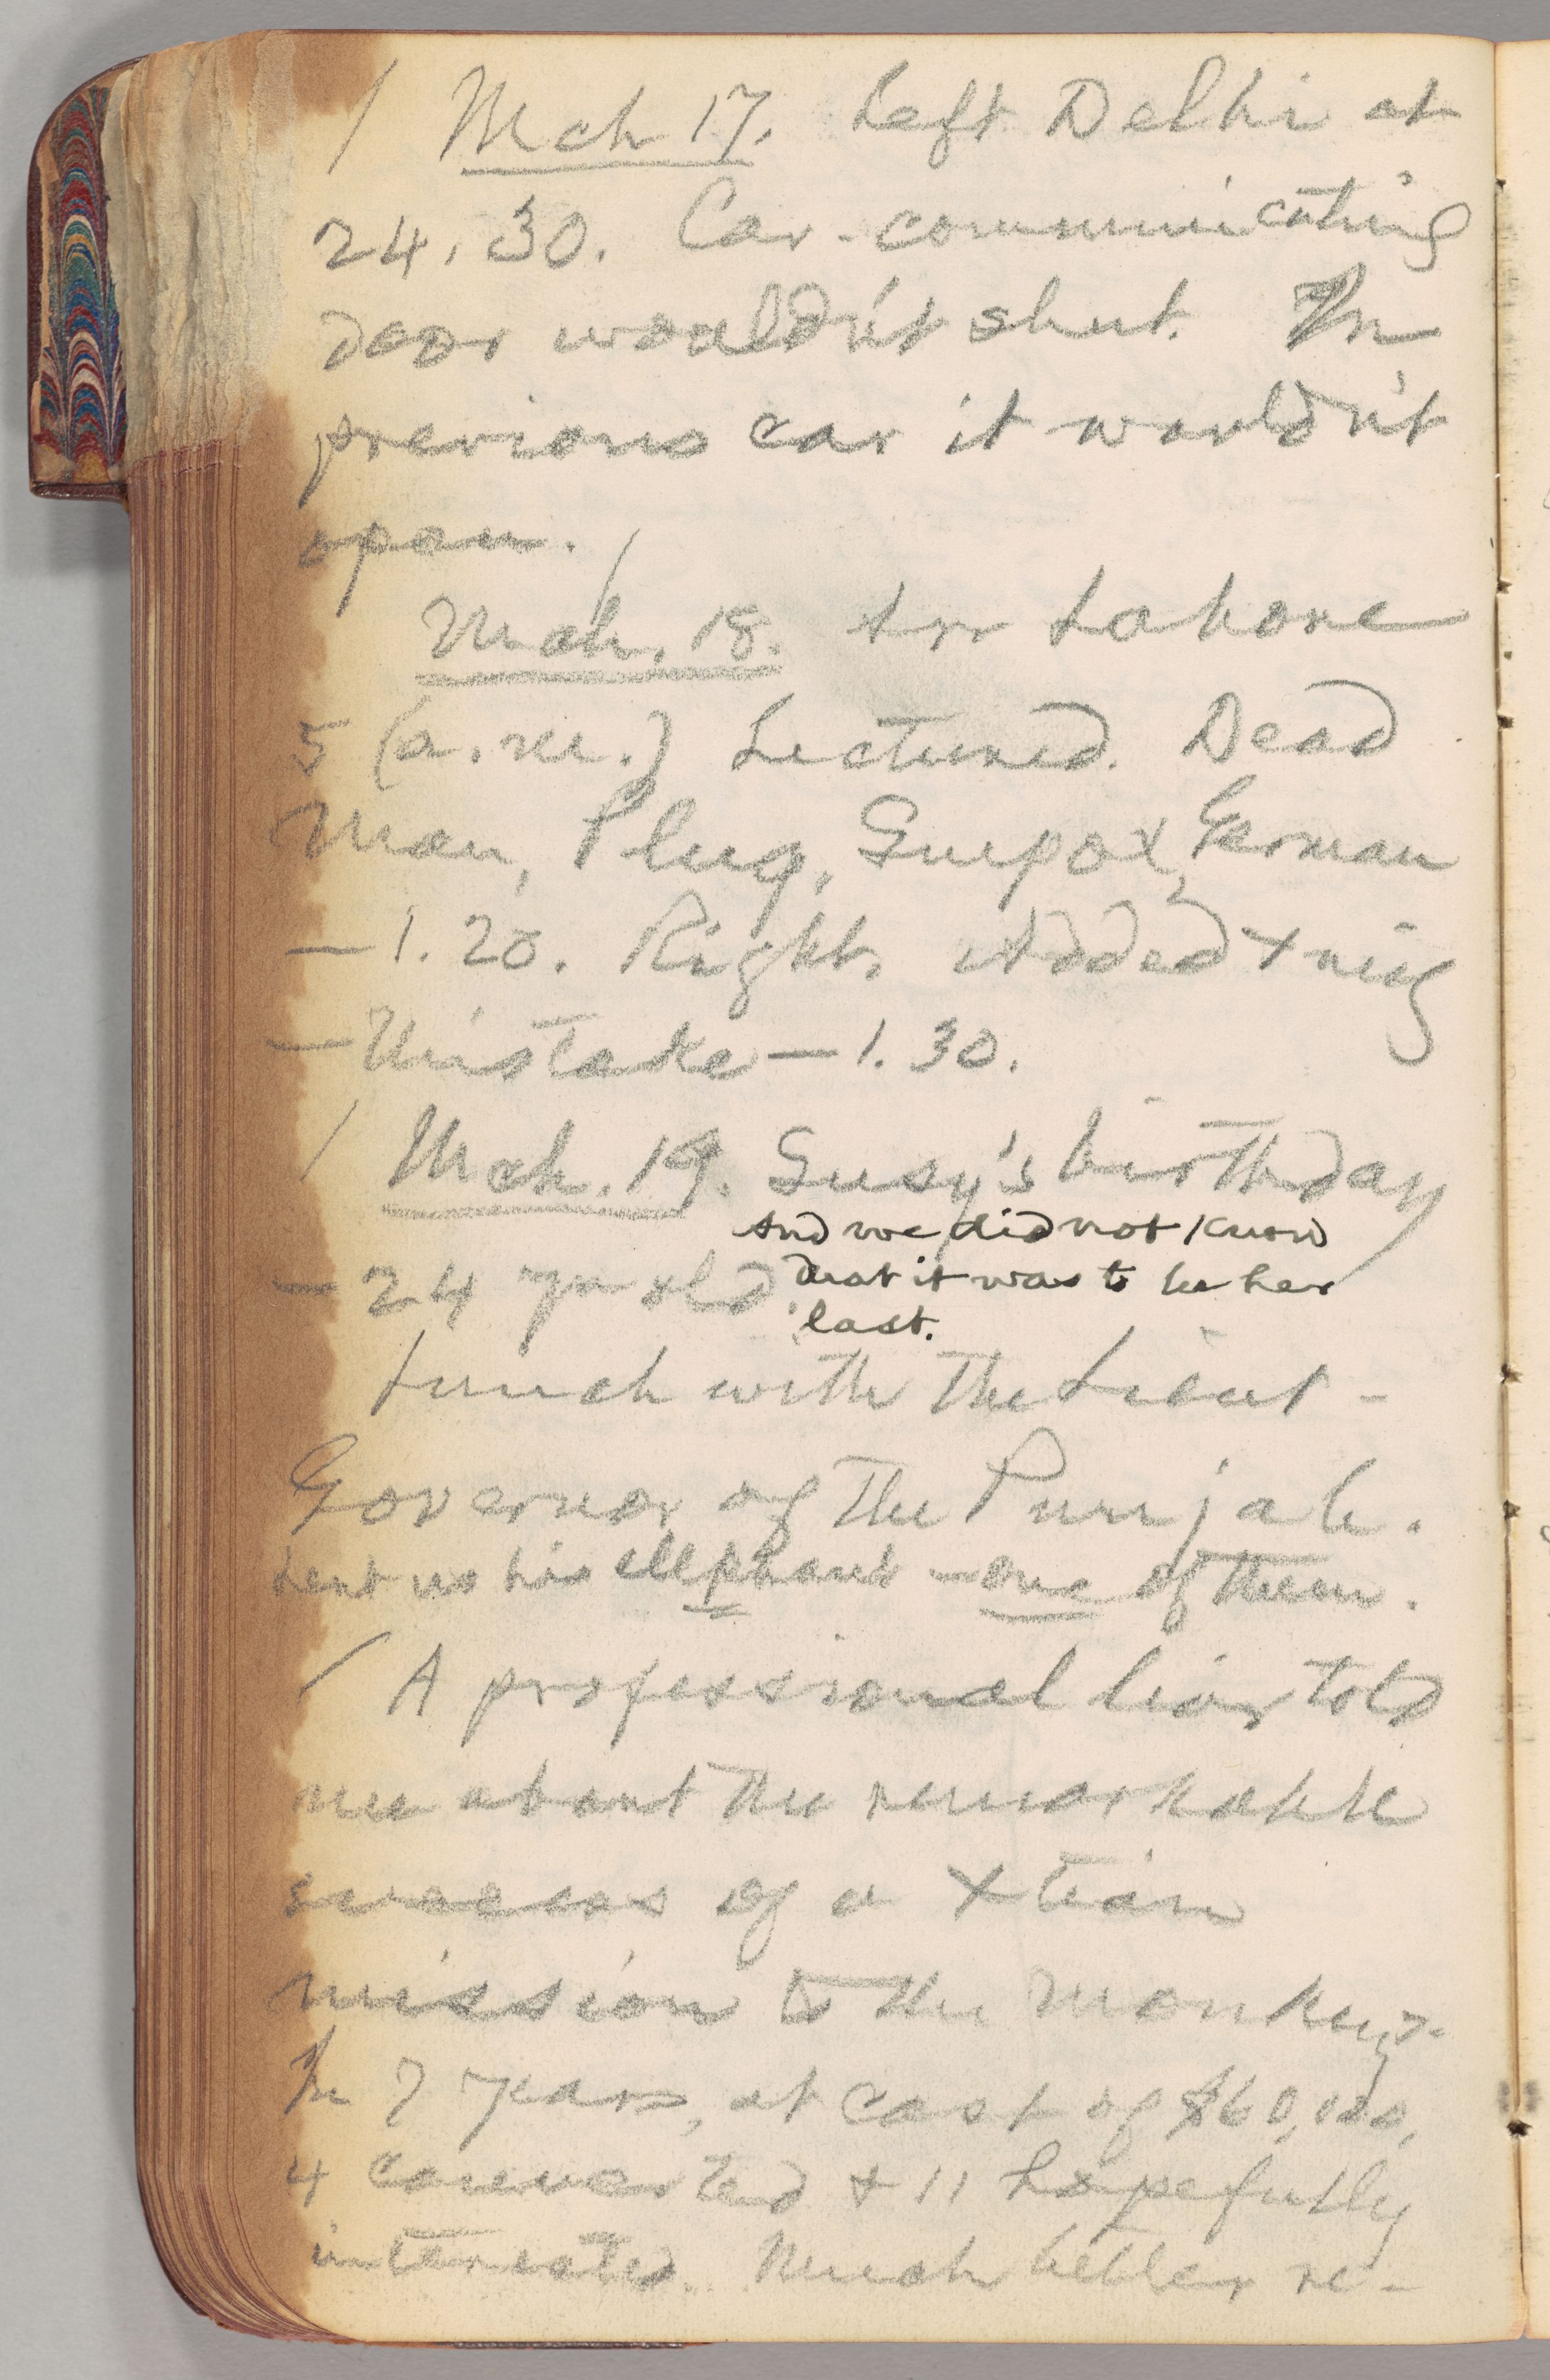 / Mch 17. Left Delhi at
24.30. Car-communicating
door wouldn't shut. In
previous car it wouldn't
open. /
Mch. 18. Arr Lahore
5 (a.m.) Lectured. Dead
Man, Plug, Smpox, German
— 1.20. Right. Added Xning
— Mistake — 1.30.
/ Mch. 19. Susy's birthday
— 24 yr old. And we did not know
that it was to be her
last.
Lunch with the Lieut-
Governor of the Punjab.
Lent us his elephant — one of them.
/ A professional liar told
me about the remarkable
success of a Xtian
mission to the monkeys.
In 7 years, at cost of $60,000,
4 converted & 11 hopefully
interested. Much better re-